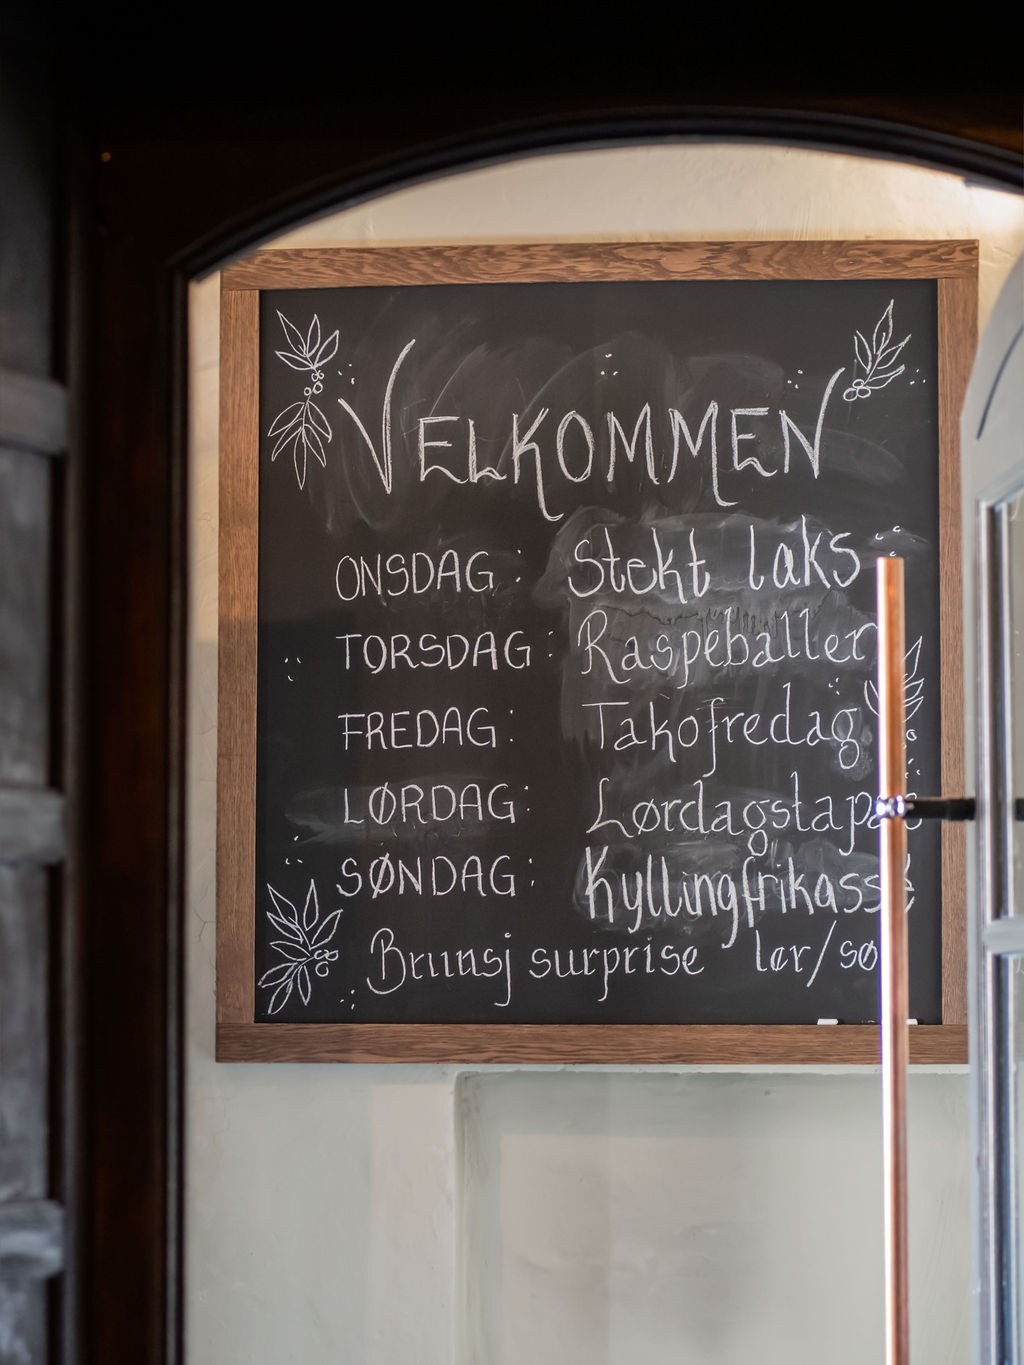 VELKOMMEN
ONSDAG: Stekt laks
TORSDAG: Raspeballer
FREDAG: Takofredag
LØRDAG: Lørdagstapas
SØNDAG: Kyllingfrikassé
Brunsj surprise lør/sø